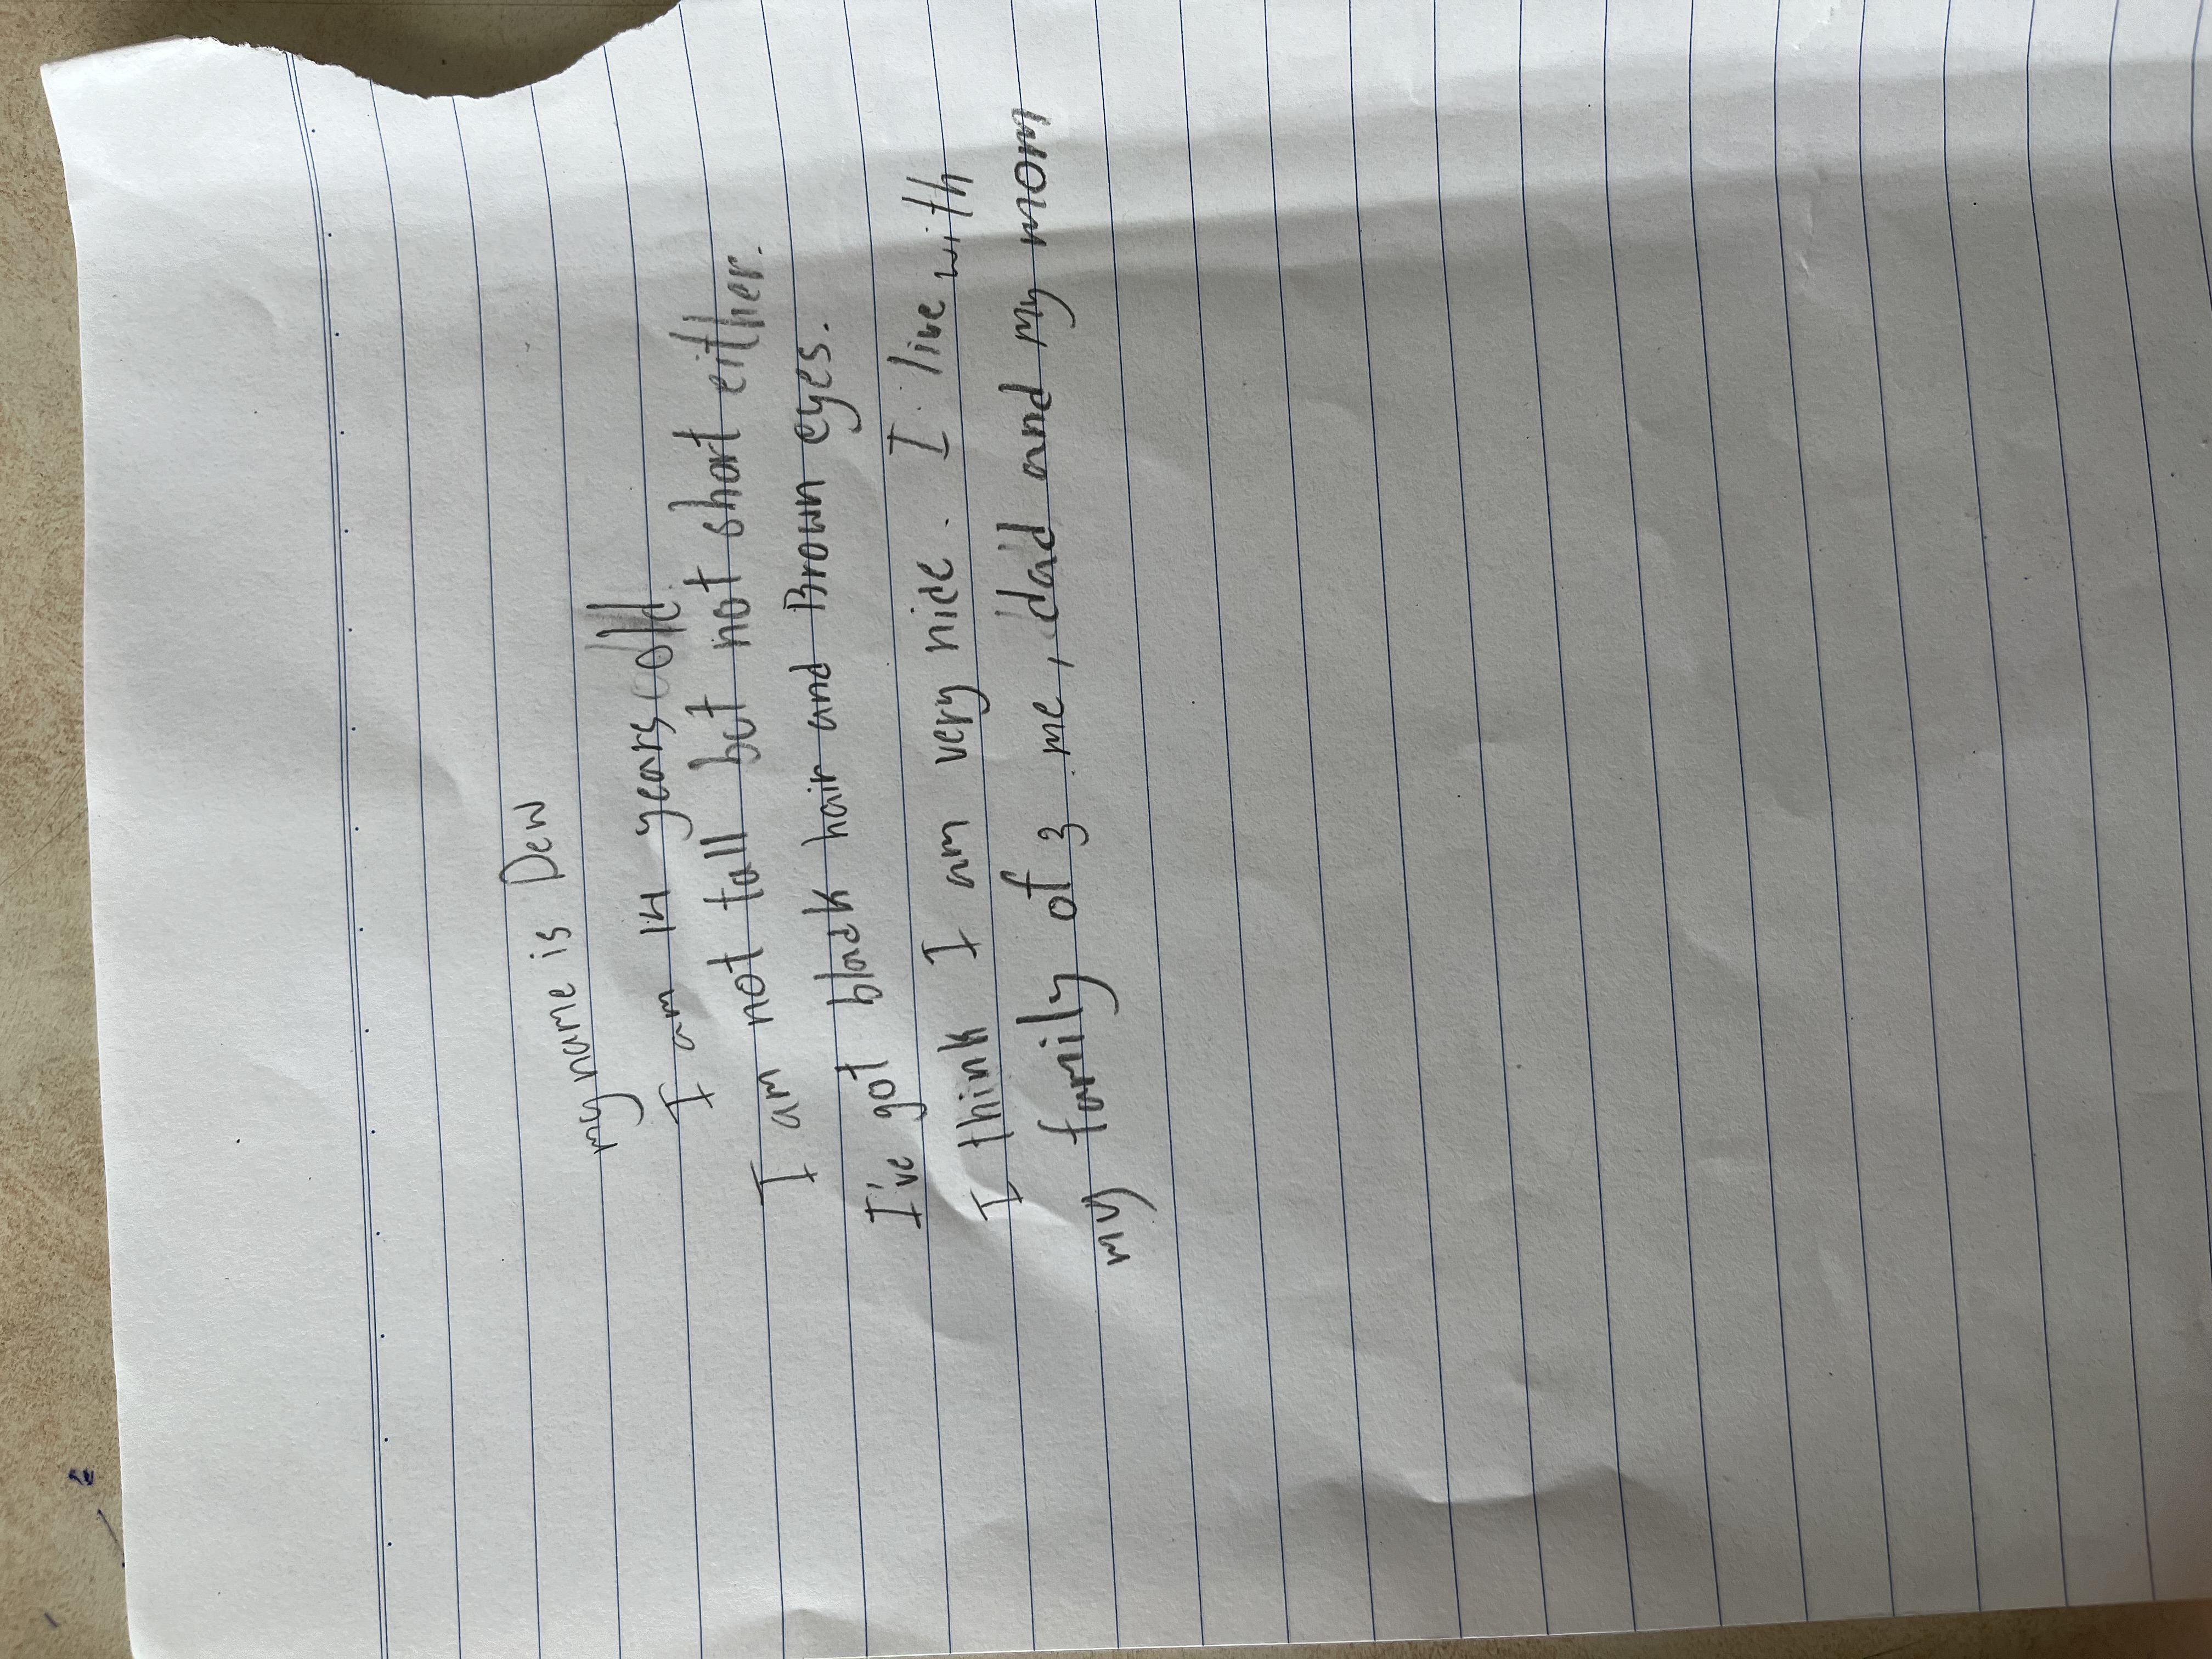 my name is Dew
I am 14 years old
I am not tall but not short either.
I've got black hair and Brown eyes.
I think I am very nice. I live with
my family of 3 me, dad and my mom